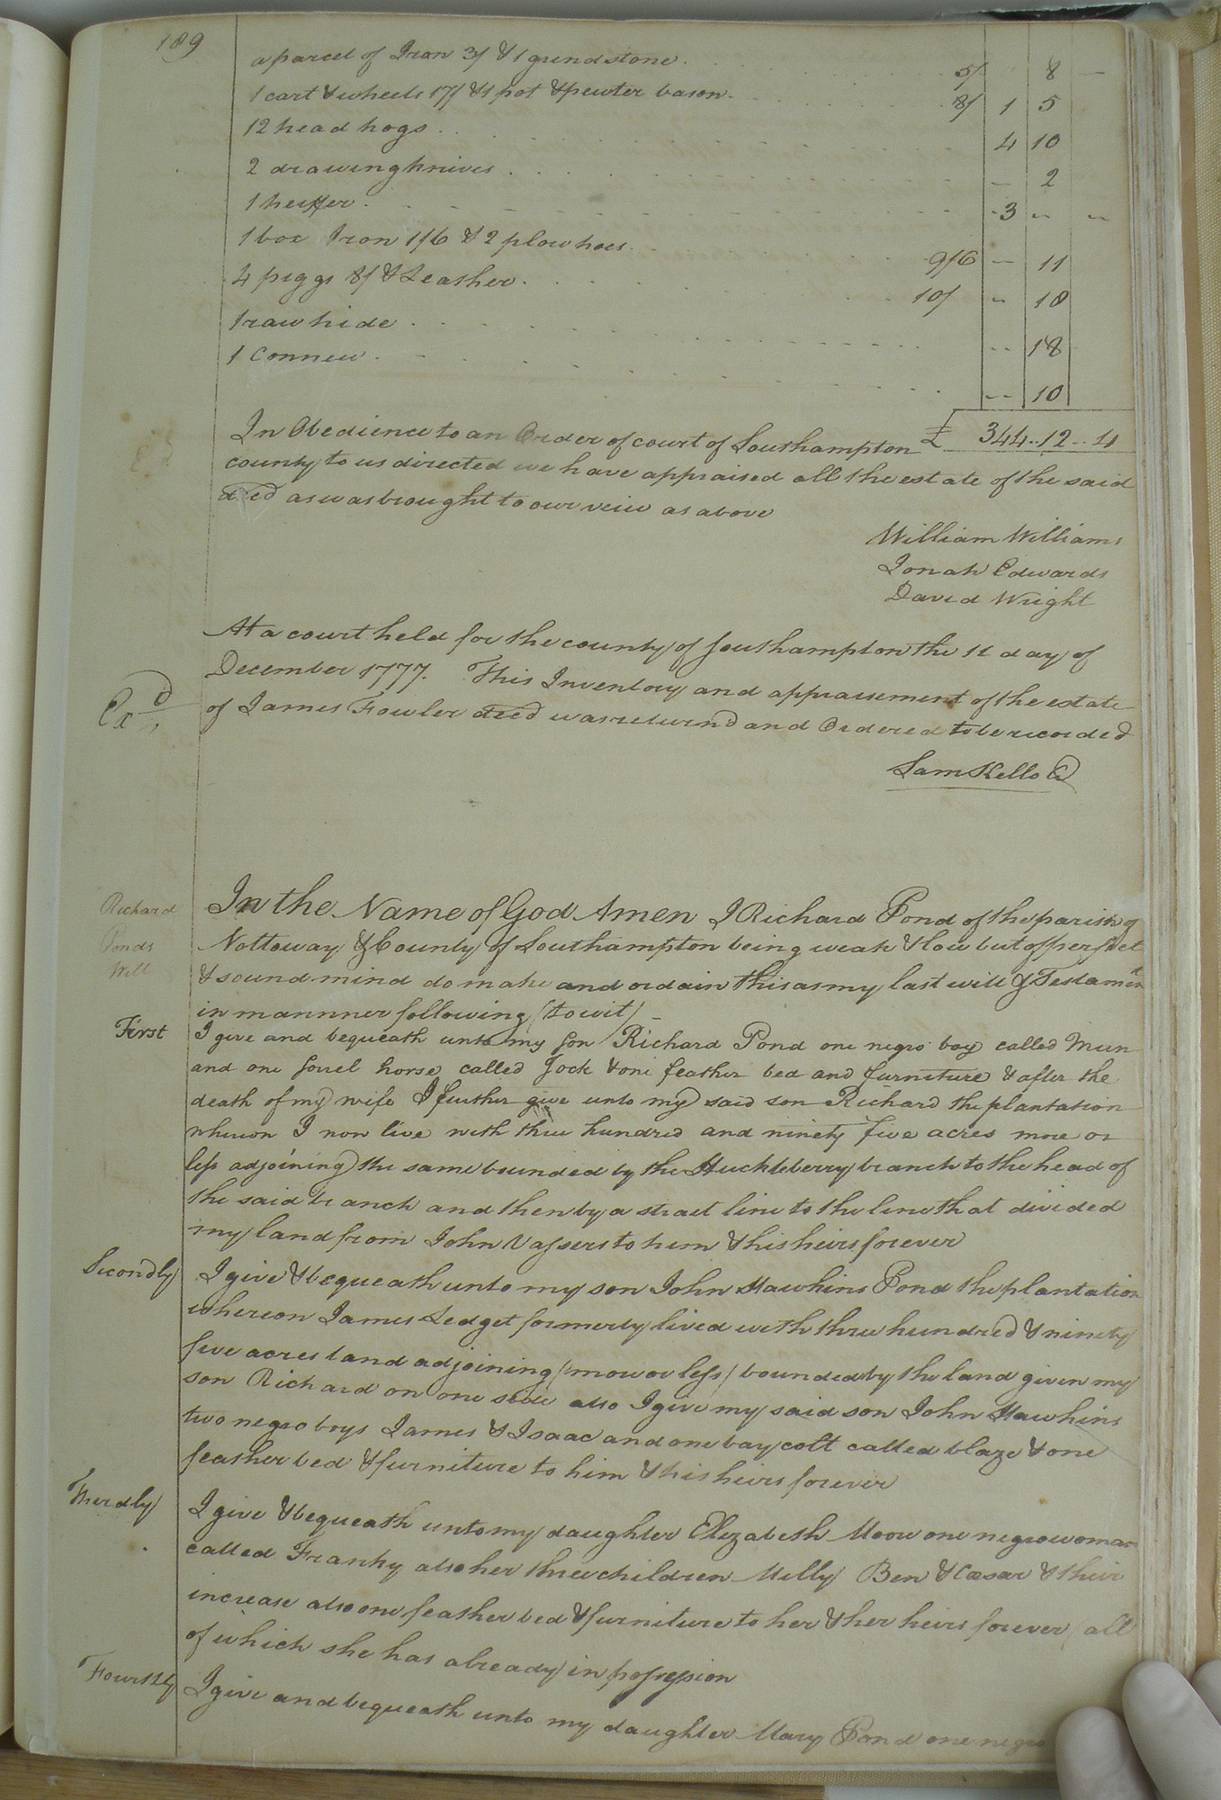 189
a parcel of Iron 3/ & 1 grindstone. 5/ 8 —
1 cart & wheels 17/ & 1 pot & pewter bason. 8/ 1 5
12 head hogs 4 10
2 drawing knives — 2
1 heiffer. 3 „ „
1 box Iron 1/6 & 2 plow hoes 9/6 — 11
4 piggs 8/ & Leather. 10/ „ 18
1 raw hide -- 18
1 Connew -- 10
£ 344..12..11
In Obedience to an Order of court of Southampton
county to us directed we have appraised all the estate of the said
deced as was brought to our veiw as above
William Williams
Jonah Edwards
David Wright
At a court held for the county of Southampton the 11 day of
December 1777. This Inventory and appraisement of the estate
Exd,
of James Fowler deced was returnd and Ordered to be recorded
Sam Kello C
Richard
Ponds
Will
In the Name of God Amen I Richard Pond of the parish of
Nottoway & County of Southampton being weak & low but of perfect
& sound mind do make and ordain this as my last will & Testament
in mannner following (to wit) —
First
I give and bequeath unto my son Richard Pond one negro boy called Mun
and one sorrel horse called Jock & one feather bed and furniture & after the
death of my wife I further give unto my said son Richard the plantation
whereon I now live with three hundred and ninety five acres more or
less adjoining the same bounded by the Huckleberry branch to the head of
the said branch and then by a strait line to the line that divided
my land from John Vassers to him & his heirs forever
Secondly
I give & bequeath unto my son John Hawkins Pond the plantation
whereon James Ledget formerly lived with three hundred & ninety
five acres land adjoining (more or less) bounded by the land given my
son Richard on one side also I give my said son John Hawkins
two negro boys James & Isaac and one bay colt called blaze & one
feather bed & furniture to him & his heirs forever
Therdly
I give & bequeath unto my daughter Elizabeth Moore one negro woman
called Franky also her three children Milly Ben & Cæsar & their
increase also one feather bed & furniture to her & her heirs forever (all
of which she has already in possession
Fourthly
I give and bequeath unto my daughter Mary Pond one negro